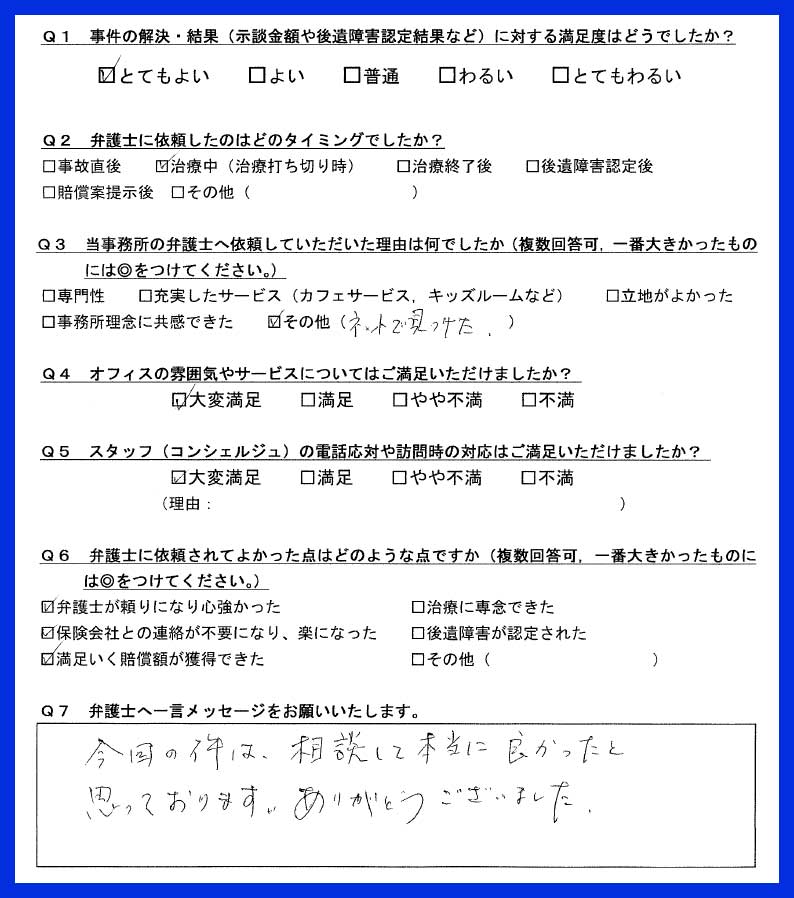 Q1 事件の解決・結果（示談金額や後遺障害認定結果など）に対する満足度はどうでしたか？
☑とてもよい □よい □普通 □わるい □とてもわるい
Q2 弁護士に依頼したのはどのタイミングでしたか？
□事故直後 ☑治療中（治療打ち切り時） □治療終了後 □後遺障害認定後
□賠償案提示後 □その他（ ）
Q3 当事務所の弁護士へ依頼していただいた理由は何でしたか（複数回答可，一番大きかったもの
には◎をつけてください。）
□専門性 □充実したサービス（カフェサービス，キッズルームなど） □立地がよかった
□事務所理念に共感できた ☑その他（ネットで見つけた．）
Q4 オフィスの雰囲気やサービスについてはご満足いただけましたか？
☑大変満足 □満足 □やや不満 □不満
Q5 スタッフ（コンシェルジュ）の電話応対や訪問時の対応はご満足いただけましたか？
☑大変満足 □満足 □やや不満 □不満
（理由： ）
Q6 弁護士に依頼されてよかった点はどのような点ですか（複数回答可，一番大きかったものに
は◎をつけてください。）
☑弁護士が頼りになり心強かった □治療に専念できた
☑保険会社との連絡が不要になり、楽になった □後遺障害が認定された
☑満足いく賠償額が獲得できた □その他（ ）
Q7 弁護士へ一言メッセージをお願いいたします。
今回の件は、相談して本当に良かったと
思っております。ありがとうございました．